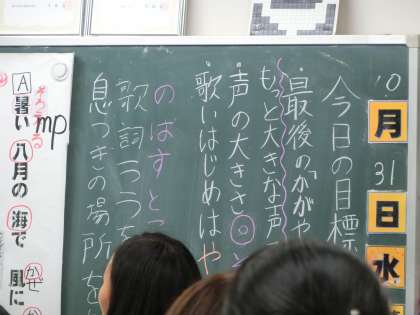 10
月
31
日
水
今日の目標
・最後の「かがや
もっと大きな声
・声の大きさ◎と
・歌いはじめはや
のばすとこ
歌詞1つ1つを
息つぎの場所を
A
そろえる
mp
暑い 八月の 海で 風に
かぜ